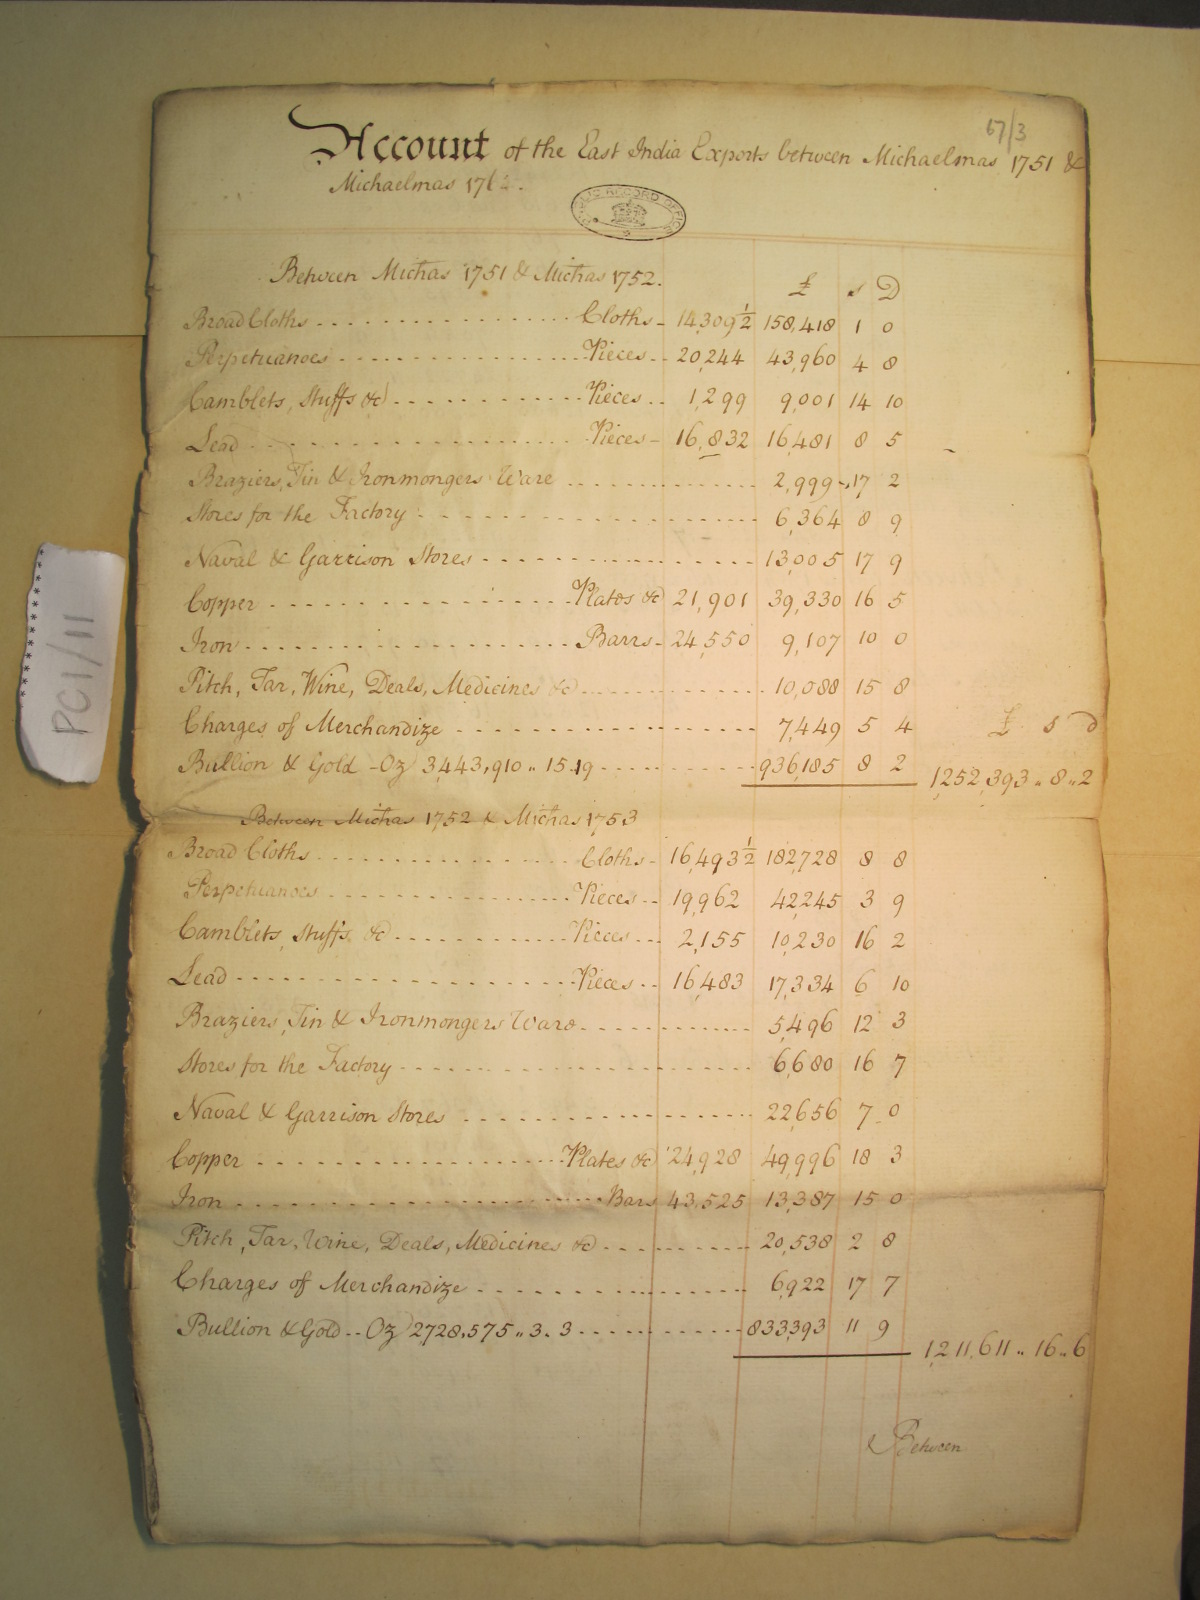 67/3
Account of the East India Exports between Michaelmas 1751 &
Michaelmas 176
PUBLIC RECORD OFFICE
Between Michas 1751 & Michas 1752.
£ s D
Broad Cloths Cloths 14,309 1/2 158,418 1 0
Perpetuanoes Pieces 20,244 43,960 4 8
Camblets, Stuffs &c Pieces 1,299 9,001 14 10
Lead Pieces 16,832 16,481 8 5
Braziers, Tin & Ironmongers Ware 2,999 17 2
Stores for the Factory 6,364 8 9
Naval & Garrison Stores 13,005 17 9
Copper Plates &c 21,901 39,330 16 5
Iron Barrs 24,550 9,107 10 0
Pitch, Tar, Wine, Deals, Medicines &c 10,088 15 8
Charges of Merchandize 7,449 5 4 £ s d
Bullion & Gold - Oz 3,443,910 .. 15.19 936,185 8 2 1,252,393 .. 8 .. 2
Between Michas 1752 & Michas 1753
Broad Cloths Cloths 16,493 1/2 182,728 8 8
Perpetuanoes Pieces 19,962 42,245 3 9
Camblets, Stuffs, &c Pieces 2,155 10,230 16 2
Lead Pieces 16,483 17,334 6 10
Braziers, Tin & Ironmongers Ware 5,496 12 3
Stores for the Factory 6,680 16 7
Naval & Garrison Stores 22,656 7 0
Copper Plates &c 24,928 49,996 18 3
Iron Bars 43,525 13,387 15 0
Pitch, Tar, Wine, Deals, Medicines &c 20,538 2 8
Charges of Merchandize 6,922 17 7
Bullion & Gold - Oz 2,728,575 .. 3. 3 833,393 11 9 1,211,611 .. 16 .. 6
Between
PC1/11